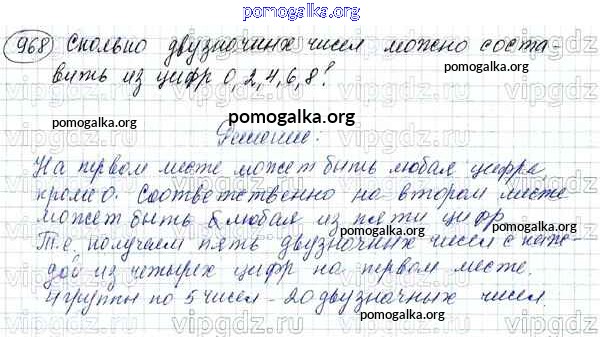 pomogalka.org
968 Сколько двузначных чисел можно соста-
pomogalka.org
вить из цифр 0, 2, 4, 6, 8?
pomogalka.org
pomogalka.org
Решение:
На первом месте может быть любая цифра,
pomogalka.org
кроме 0. Соответственно на втором месте
может быть любая из пяти цифр
pomogalka.org
Т.е. получаем пять двузначных чисел с каж-
дой из четырех цифр на первом месте.
pomogalka.org
4 группы по 5 чисел - 20 двузначных чисел.
vipgdz vipgdz vipgdz